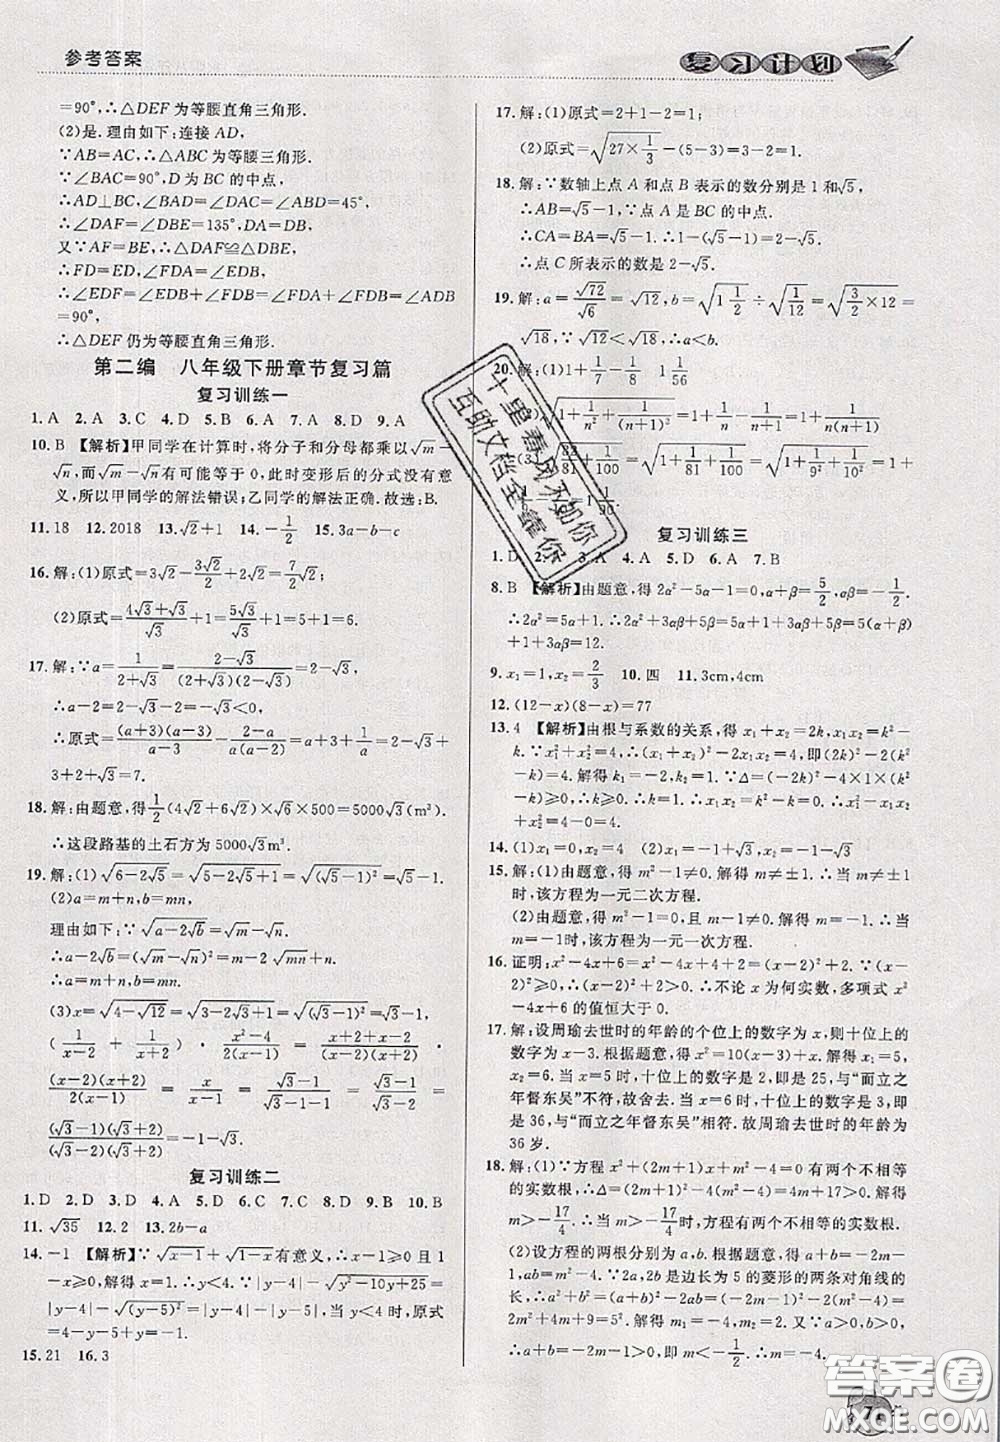 参考答案
复习计划
=90°,∴△DEF为等腰直角三角形.
(2)是.理由如下:连接AD,
∵AB=AC,∴△ABC为等腰三角形.
∵∠BAC=90°,D为BC的中点,
∴AD⊥BC,∠BAD=∠DAC=∠ABC=45°,
∴∠DAF=∠DBE=135°,DA=DB.
又∵AF=BE,∴△DAF≌△DBE.
∴FD=ED,∠FDA=∠EDB.
∴∠EDF=∠EDB+∠FDB=∠FDA+∠FDB=∠ADB
=90°,
∴△DEF仍为等腰直角三角形.
第二编 八年级下册章节复习篇
复习训练一
1.A 2.A 3.C 4.D 5.B 6.A 7.A 8.D 9.A
10.B 【解析】甲同学在计算时,将分子和分母都乘以√m-
√n,而√m-√n有可能等于0,此时变形后的分式没有意
义,所以甲同学的解法错误;乙同学的解法正确.故选:B.
11.18 12.2018 13.√2+1 14.-1/2 15.3a-b-c
16.解:(1)原式=3√2-3√2/2+2√2=7√2/2.
(2)原式=(4√3+√3)/√3+1=5√3/√3+1=5+1=6.
17.解:∵a=1/(2+√3)=(2-√3)/((2+√3)(2-√3))=2-√3,
∴a-2=2-√3-2=-√3<0.
∴原式=(a+3)(a-3)/(a-3)-(2-a)/(a(a-2))=a+3+1/a=2-√3+
3+2+√3=7.
18.解:由题意,得1/2(4√2+6√2)×√6×500=5000√3(m³).
∴这段路基的土石方为5000√3m³.
19.解:(1)√(6-2√5)=√(5-2√5+1)=√((√5-1)²)=√5-1.
(2)a=m+n,b=mn,
理由如下:∵√(a-2√b)=√m-√n,
∴a-2√b=(√m-√n)²=m-2√mn+n.
∴a=m+n,b=mn.
(3)x=√(4-√12)=√(3-2√3+1)=√((√3-1)²)=√3-1.
(1/(x-2)+1/(x+2))·(x²-4)/(2(x-1))=2x/((x-2)(x+2))·
(x-2)(x+2)/(2(x-1))=x/(x-1)=(√3-1)/(√3-1-1)=(√3-1)/(√3-2)=
(√3-1)(√3+2)/((√3-2)(√3+2))=-1-√3.
复习训练二
1.D 2.D 3.D 4.A 5.C 6.C 7.D 8.C 9.B 10.B
11.√35 12.2 13.2b-a
14.-1 【解析】∵√(x-1)+√(1-x)有意义,∴x-1≥0且
1-x≥0,解得x=1.∴y<4.∴|y-4|-√(y²-10y+25)=
|y-4|-√((y-5)²)=|y-4|-|y-5|.当y<4时,原式
=4-y-(5-y)=-1.
15.21 16.3
17.解:(1)原式=2+1-2=1;
(2)原式=√(27×1/3)-(5-3)=3-2=1.
18.解:∵数轴上点A和点B表示的数分别是1和√5,
∴AB=√5-1.∵点A是BC的中点,
∴CA=BA=√5-1.∴1-(√5-1)=2-√5.
∴点C所表示的数是2-√5.
19.解:a=√72/√6=√12,b=√(1 1/2)÷√(1/12)=√(3/2×12)=
√18,∵√12<√18,∴a<b.
20.解:(1)1 1/20
1 1/56
√(82/81+1/100)=√(1+1/81+1/100)=√(1+1/9²+1/10²)=1+
复习训练三
1.D 3.A 4.A 5.D 6.A 7.B
8.B 【解析】由题意,得2α²-5α-1=0,α+β=5/2,αβ=-1/2.
∴2α²=5α+1.∴2α²+3αβ+5β=5α+1+3αβ+5β=5(α+β)
+1+3αβ=12.
9.x₁=1,x₂=2/3 10.四 11.3cm,4cm
12.(12-x)(8-x)=77
13.4 【解析】由根与系数的关系,得x₁+x₂=2k,x₁x₂=k²-
k.∵x₁²+x₂²=4,∴(x₁+x₂)²-2x₁x₂=4,即(2k)²-2(k²
-k)=4.解得k₁=-2,k₂=1.∵Δ=(-2k)²-4×1×(k²-
k)=4k≥0,∴k≥0.∴k=1.∴x₁x₂=k²-k=0.∴x₁²-x₁x₂
+x₂²=4-0=4.
14.(1)x₁=0,x₂=4 (2)x₁=-1+√3,x₂=-1-√3
15.解:(1)由题意,得m²-1≠0.解得m≠±1.∴当m≠±1
时,该方程为一元二次方程.
(2)由题意,得m²-1=0,且m-1≠0.解得m=-1.∴当
m=-1时,该方程为一元一次方程.
16.证明:x²-4x+6=x²-4x+4+2=(x-2)²+2.∵(x-
2)²≥0,∴(x-2)²+2>0.∴不论x为何实数,多项式x²
-4x+6的值恒大于0.
17.解:设周瑜去世时的年龄的个位上的数字为x,则十位上的
数字为x-3.根据题意,得x²=10(x-3)+x.解得x₁=5,
x₂=6.当x=5时,十位上的数字是2,即是25,与“而立之
年督东吴”不符,故舍去.当x=6时,十位上的数字是3,即
是36,与“而立之年督东吴”相符.故周瑜去世时的年龄为
36岁.
18.解:(1)∵方程x²+(2m+1)x+m²-4=0有两个不相等
的实数根,∴Δ=(2m+1)²-4(m²-4)=4m+17>0.解得
m>-17/4.∴当m>-17/4时,方程有两个不相等的实数根.
(2)设方程的两根分别为a,b.根据题意,得a+b=-2m-
1,ab=m²-4.∵2a,2b是边长为5的菱形的两条对角线的
长,∴a²+b²=(a+b)²-2ab=(-2m-1)²-2(m²-4)=
2m²+4m+9=5².解得m₁=-4,m₂=2.∵a>0,b>0,∴a
+b=-2m-1>0.∴m<-1/2.
十里春风不如你
互助文档全靠你
答案圈
MXQE.COM